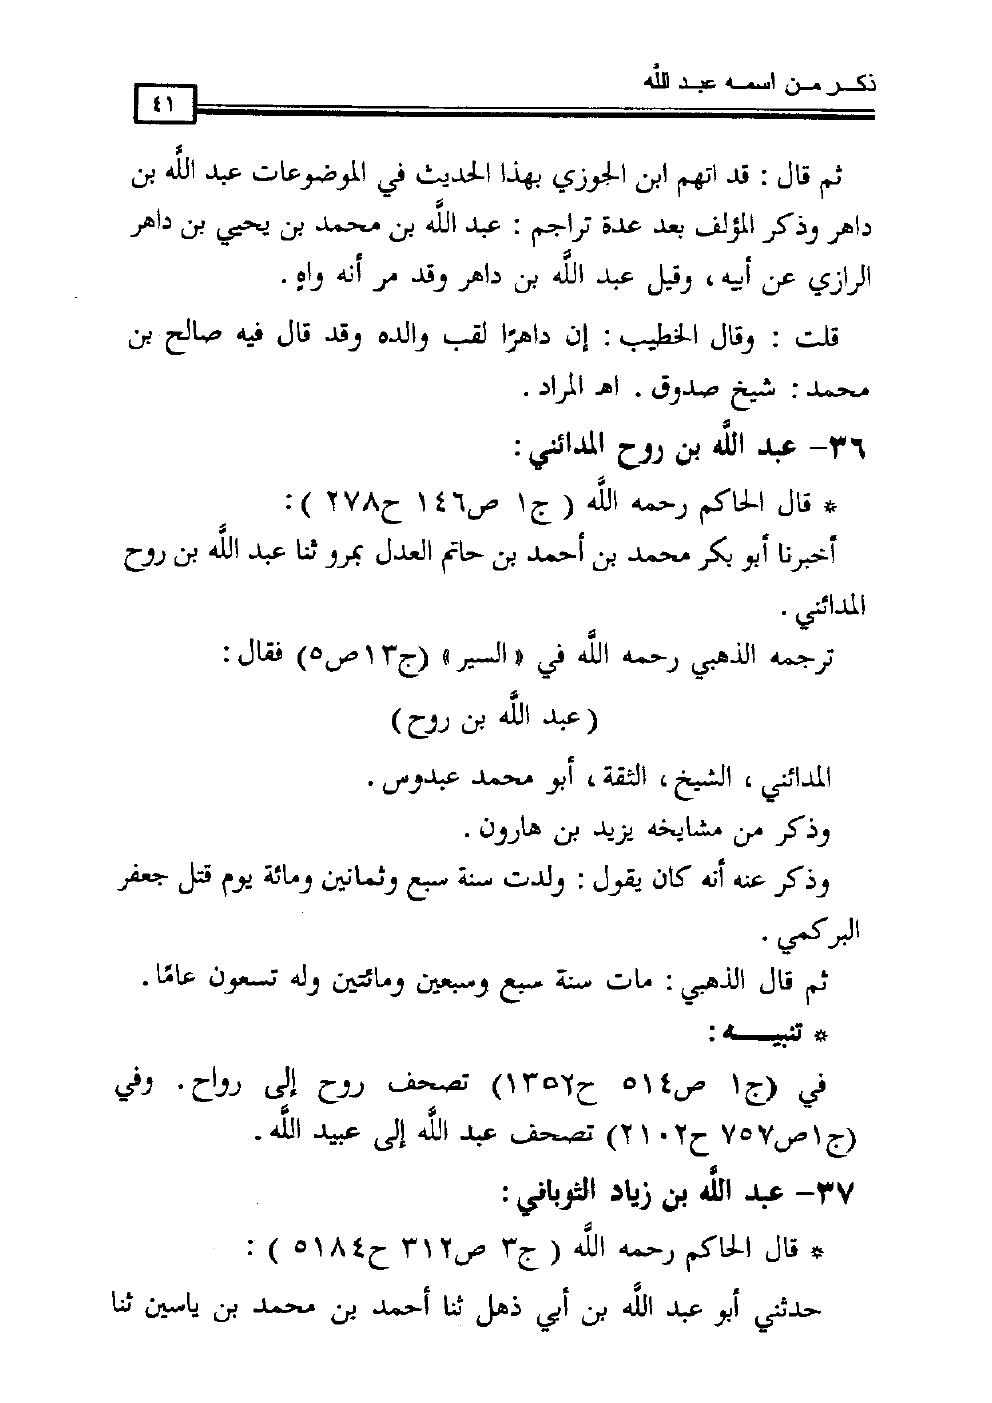 ذكر من اسمه عبد الله
٤١
ثم قال : قد اتهم ابن الجوزي بهذا الحديث في الموضوعات عبد اللَّه بن
داهر وذكر المؤلف بعد عدة تراجم : عبد اللَّه بن محمد بن يحيي بن داهر
الرازي عن أبيه ، وقيل عبد اللَّه بن داهر وقد مر أنه واهٍ .
قلت : وقال الخطيب : إن داهرًا لقب والده وقد قال فيه صالح بن
محمد : شيخ صدوق . اهـ المراد .
٣٦- عبد اللَّه بن روح المدائني :
* قال الحاكم رحمه اللَّه ( ج١ ص١٤٦ ح٢٧٨ ) :
أخبرنا أبو بكر محمد بن أحمد بن حاتم العدل بمرو ثنا عبد اللَّه بن روح
المدائني .
ترجمه الذهبي رحمه اللَّه في « السير » (ج١٣ص٥) فقال :
( عبد اللَّه بن روح )
المدائني ، الشيخ ، الثقة ، أبو محمد عبدوس .
وذكر من مشايخه يزيد بن هارون .
وذكر عنه أنه كان يقول : ولدت سنة سبع وثمانين ومائة يوم قتل جعفر
البركمي .
ثم قال الذهبي : مات سنة سبع وسبعين ومائتين وله تسعون عامًا .
* تنبيـــــه :
في (ج١ ص٥١٤ ح١٣٥٢) تصحف روح إلى رواح . وفي
(ج١ص٧٥٧ ح٢١٠٢) تصحف عبد اللَّه إلى عبيد اللَّه .
٣٧- عبد اللَّه بن زياد الثوباني :
* قال الحاكم رحمه اللَّه ( ج٣ ص٣١٢ ح٥١٨٤ ) :
حدثني أبو عبد اللَّه بن أبي ذهل ثنا أحمد بن محمد بن ياسين ثنا